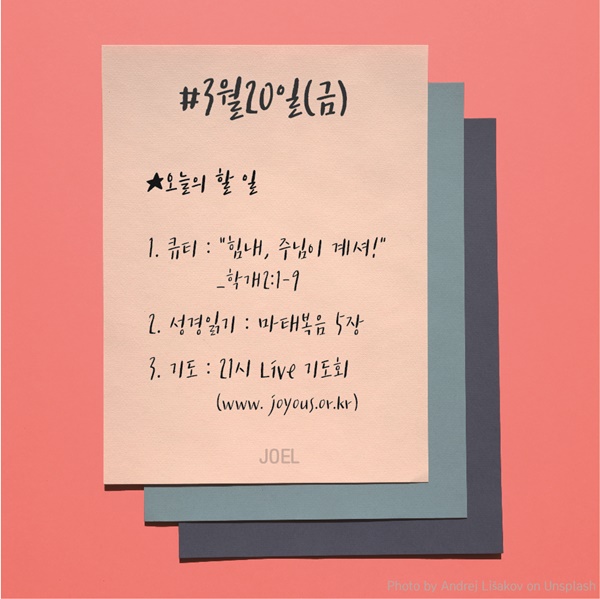 #3월20일(금)
★오늘의 할 일
1. 큐티 : "힘내, 주님이 계셔!"
_학개2:1-9
2. 성경읽기 : 마태복음 5장
3. 기도 : 21시 Live 기도회
(www. joyous.or.kr)
JOEL
Photo by Andrej Lišakov on Unsplash